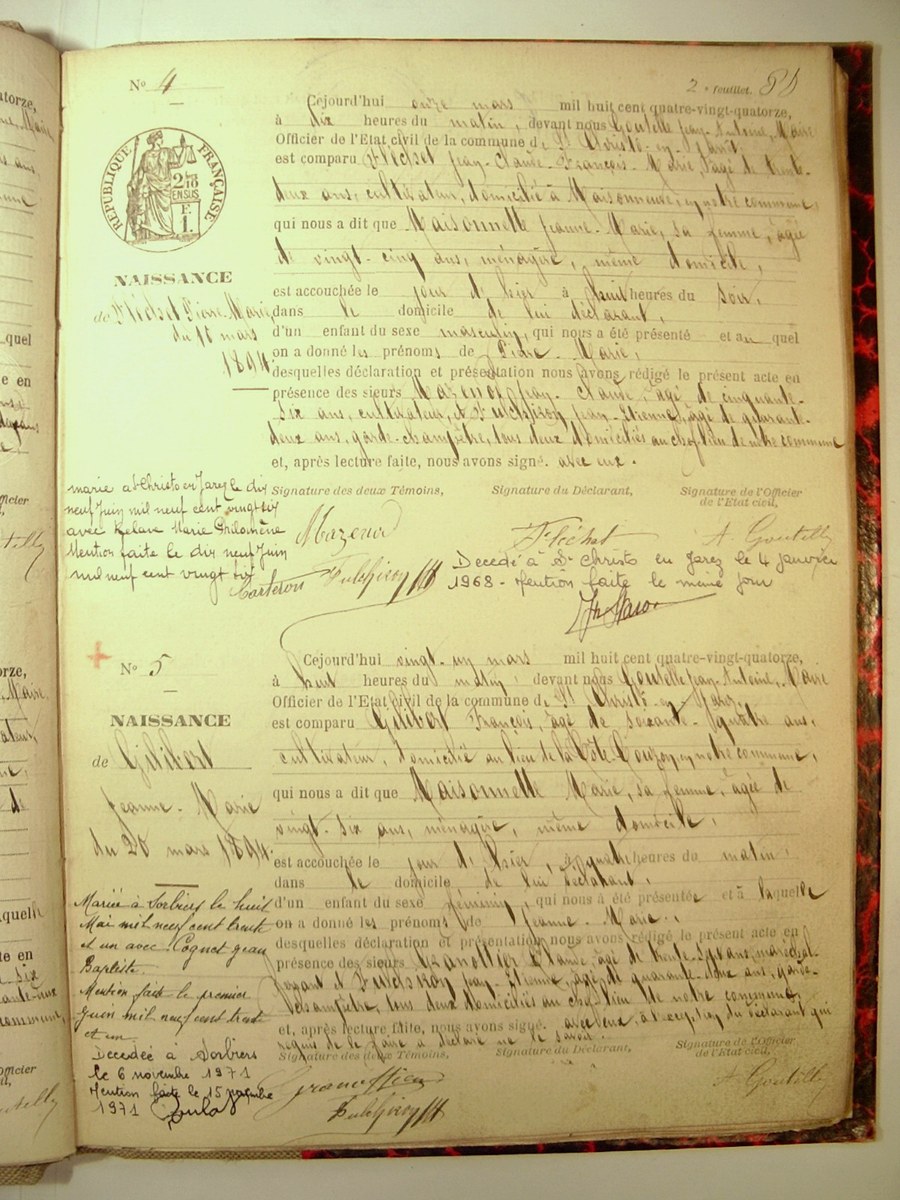 Nº 4
2e feuillet.
Cejourd'hui onze mars mil huit cent quatre-vingt-quatorze,
à dix heures du matin, devant nous Goutelle Jean-Antoine, Maire
Officier de l'Etat civil de la commune de St Christo-en-Jarez
est comparu Fléchet Jean-Claude-François-Marie, âgé de trente-
deux ans, cultivateur, domicilié à Maisonneuve, en notre commune,
qui nous a dit que Maisonnette Jeanne-Marie, sa femme, âgée
de vingt-cinq ans, ménagère, même domicile,
est accouchée le jour d'hier à huit heures du soir,
dans le domicile de lui déclarant,
d'un enfant du sexe masculin, qui nous a été présenté et au quel
on a donné les prénoms de Pierre-Marie,
desquelles déclaration et présentation nous avons rédigé le présent acte en
présence des sieurs Mazenod Jean-Claude, âgé de cinquante-
six ans, cultivateur, et Fulchiron Jean-Etienne, âgé de quarante-
deux ans, garde-champêtre, tous deux domiciliés au chef-lieu de notre commune
et, après lecture faite, nous avons signé avec eux.
RÉPUBLIQUE FRANÇAISE
2/10
EN SUS
F.
1.
NAISSANCE
de Fléchet Pierre-Marie
du 10 mars
1894.
Signature des deux Témoins, Signature du Déclarant, Signature de l'Officier
de l'Etat civil,
Mazenod Fléchet A. Goutelle
Fulchiron
marié à St Christo en Jarez le dix
neuf Juin mil neuf cent vingt six
avec Marie Philomène
Mention faite le dix neuf Juin
mil neuf cent vingt six
Décédé à St Christo en Jarez le 4 janvier
1968 - Mention faite le même jour
Nº 5
Cejourd'hui vingt-un mars mil huit cent quatre-vingt-quatorze,
à huit heures du matin, devant nous Goutelle Jean-Antoine, Maire
Officier de l'Etat civil de la commune de St Christo-en-Jarez
est comparu Gilibert François, âgé de soixante-quatre ans,
cultivateur, domicilié au lieu de la Côte en notre commune,
qui nous a dit que Maisonnette Marie, sa femme, âgée de
vingt-six ans, ménagère, même domicile,
est accouchée le jour d'hier, à quatre heures du matin,
dans le domicile de lui déclarant,
d'un enfant du sexe féminin, qui nous a été présentée et à laquelle
on a donné les prénoms de Jeanne-Marie,
desquelles déclaration et présentation nous avons rédigé le présent acte en
présence des sieurs Claude, âgé de trente ans, maréchal-
ferrant et Fulchiron Jean-Etienne, âgé de quarante-deux ans, garde-
champêtre, tous deux domiciliés au chef-lieu de notre commune,
et, après lecture faite, nous avons signé avec eux, à l'exception du déclarant qui
requis de le faire a déclaré ne le savoir.
NAISSANCE
de Gilibert
Jeanne-Marie
du 20 mars 1894.
Signature des deux Témoins, Signature du Déclarant, Signature de l'Officier
de l'Etat civil,
Fulchiron A. Goutelle
Mariée à Sorbiers le huit
Mai mil neuf cent trente
et un avec Cognet Jean
Baptiste.
Mention faite le premier
Juin mil neuf cent trente
et un
Décédée à Sorbiers
le 6 novembre 1971
Mention faite le 15 novembre
1971